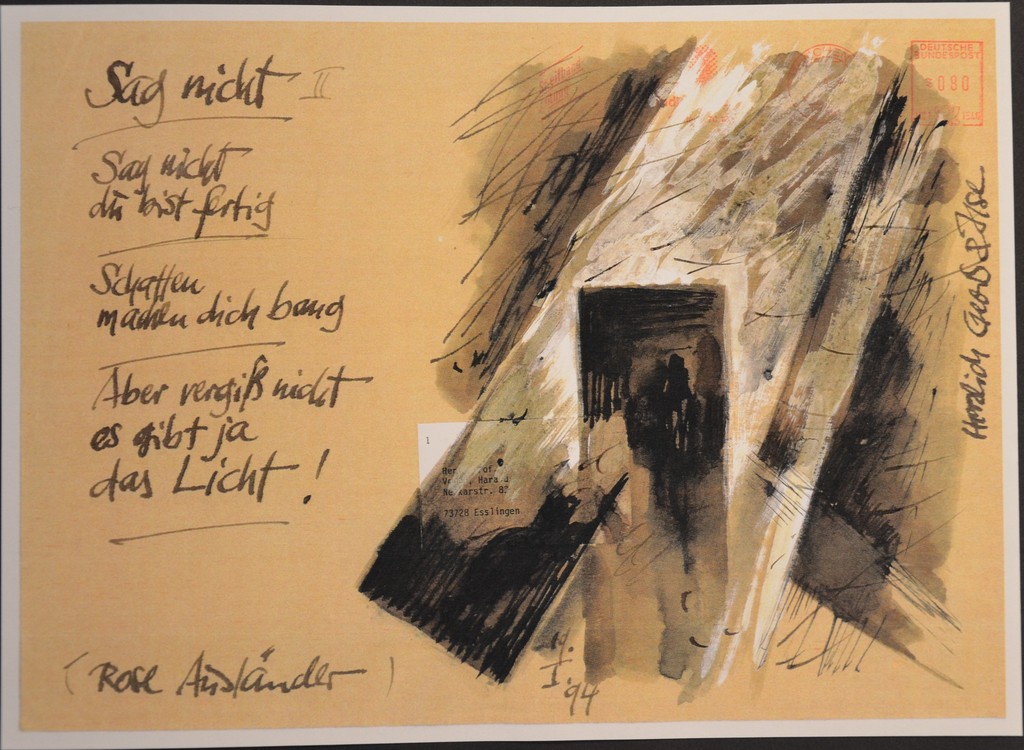 Sag nicht II
Sag nicht
du bist fertig
Schatten
machen dich bang
Aber vergiß nicht
es gibt ja
das Licht!
(Rose Ausländer)
DEUTSCHE
BUNDESPOST
080
Herzlich
1
Harald
82
73728 Esslingen
'94